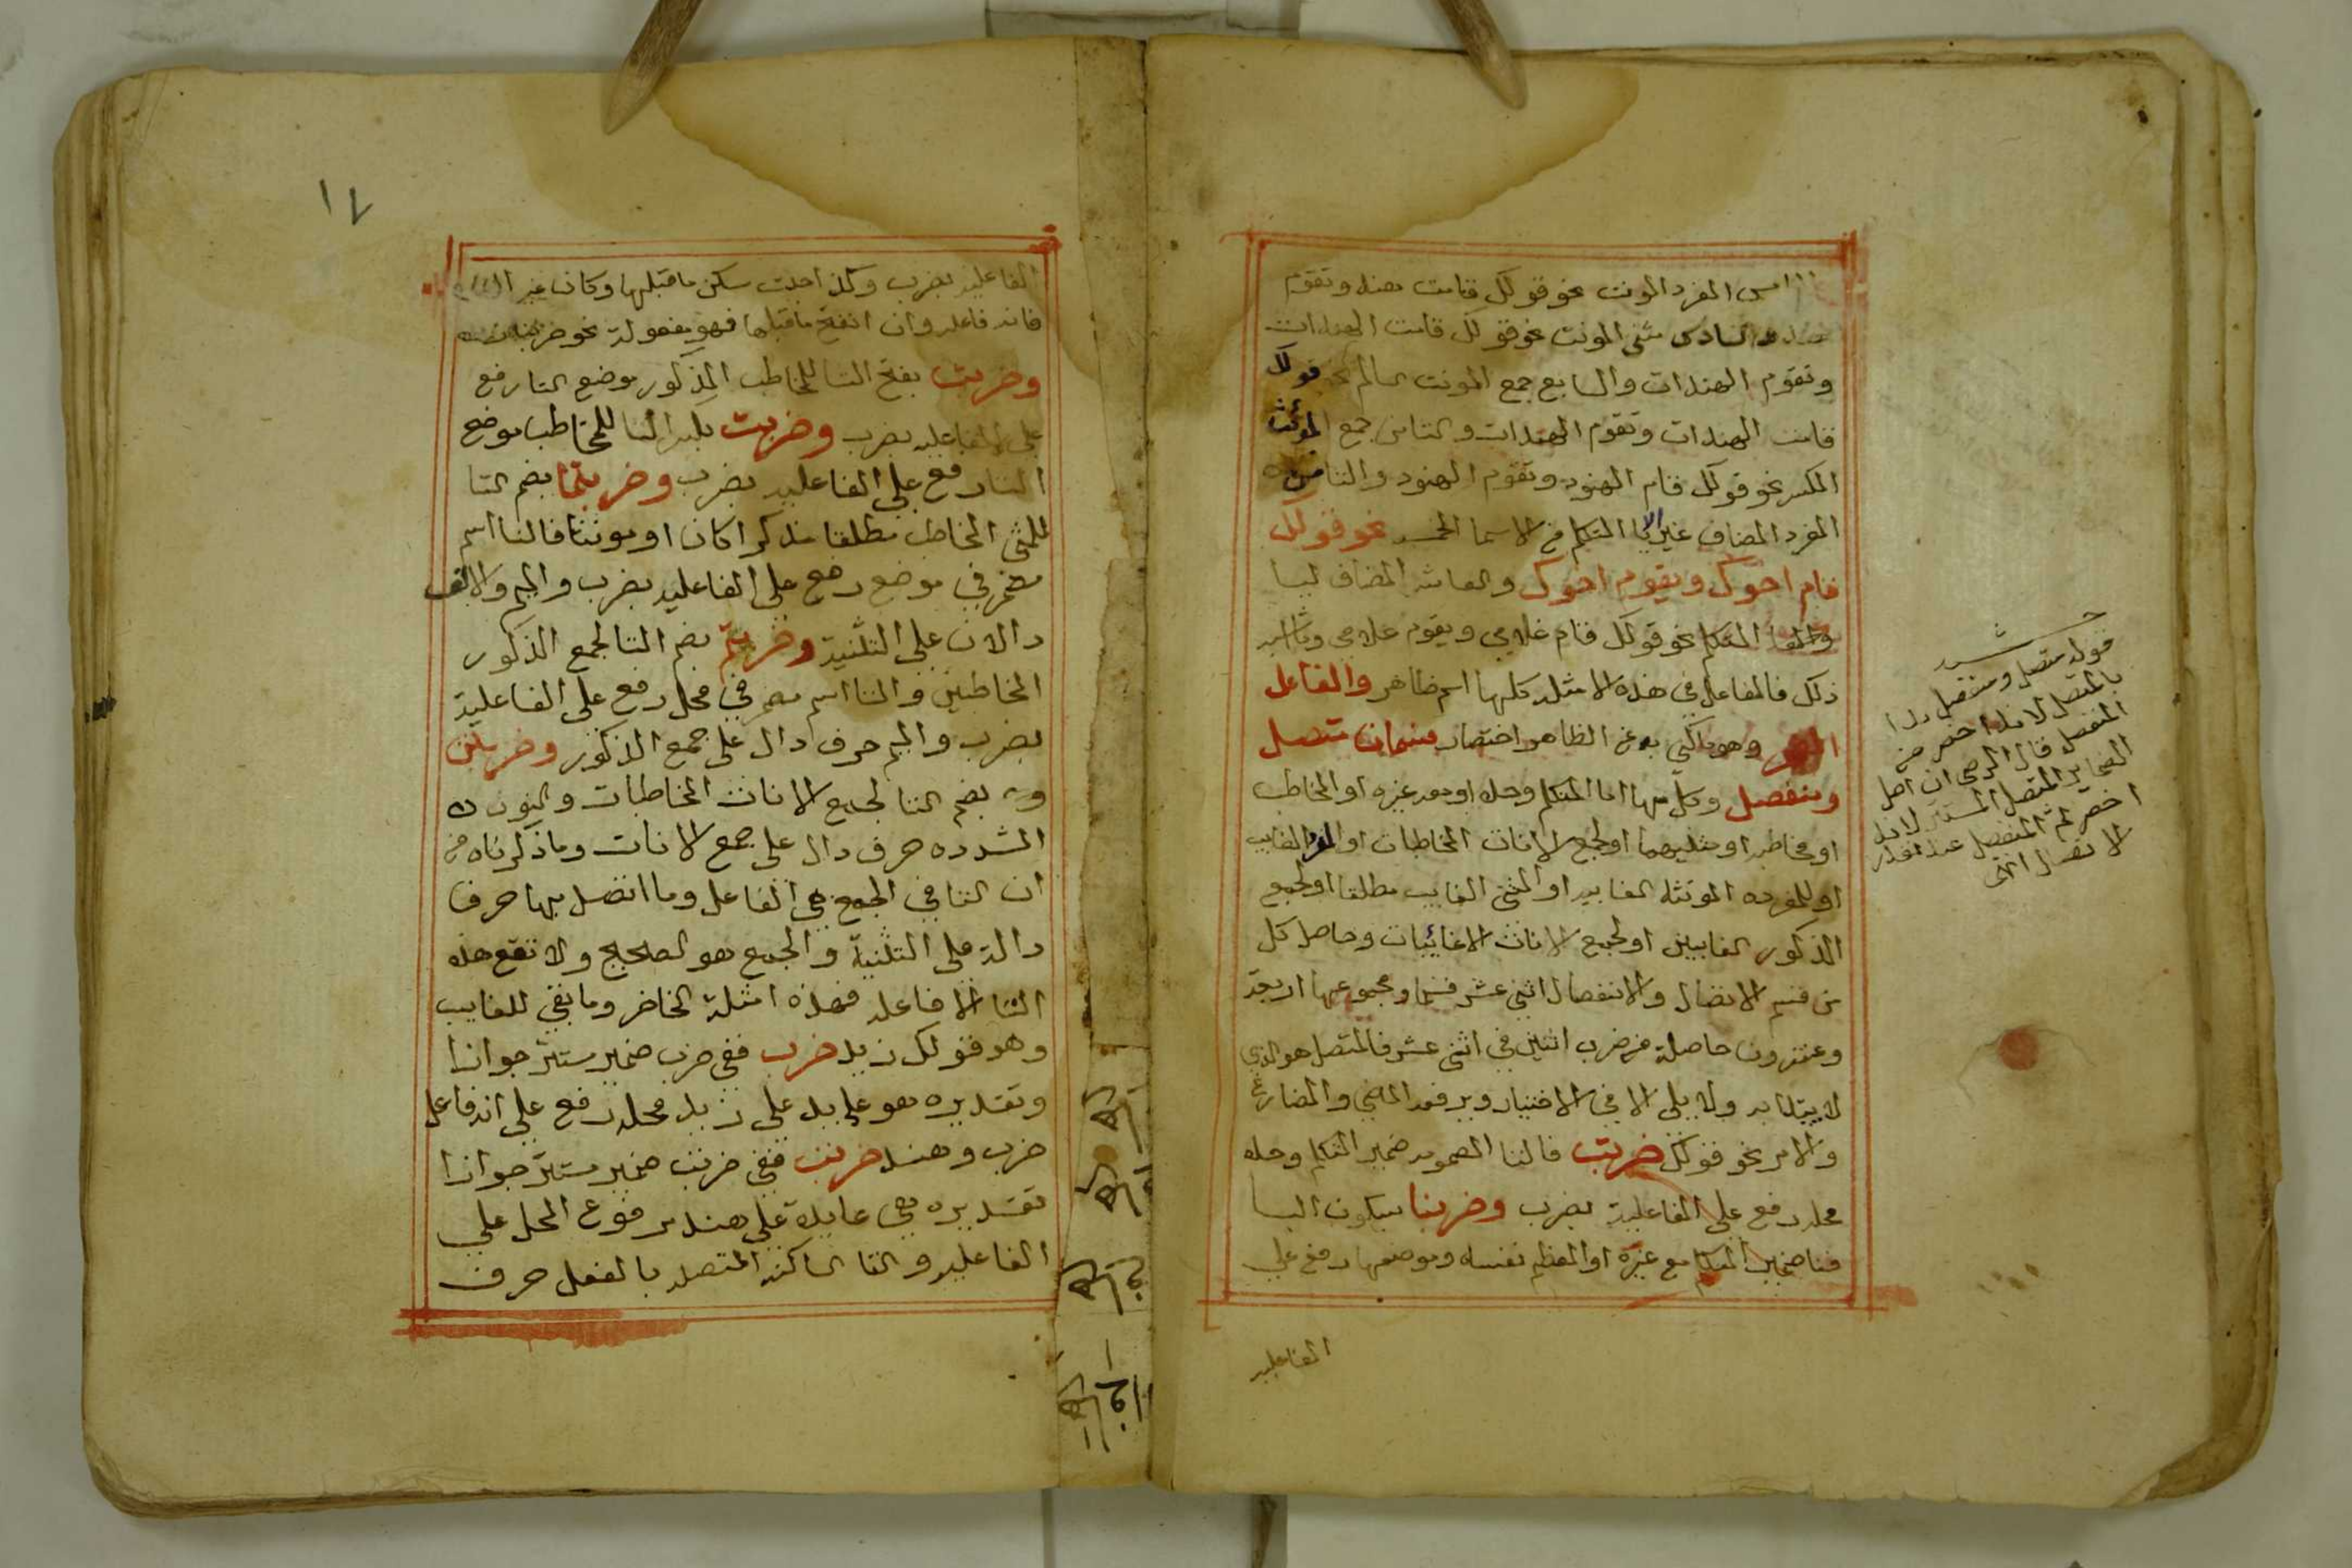 المفرد المونث نحو قولك قامت هند وتقوم
هند والسادس مثنى المونث نحو قولك قامت الهندات
وتقوم الهندات والسابع جمع المونث السالم نحو قولك
قامت الهندات وتقوم الهندات والثامن جمع المؤنث
المكسر نحو قولك قام الهنود وتقوم الهنود والتاسع
المفرد المضاف غير اليا المتكلم من الاسما الخمسه نحو قولك
قام اخوك ويقوم اخوك والعاشر المضاف ليا
المتكلم نحو قولك قام غلامي ويقوم غلامي وما اشبه
ذلك فالفاعل في هذه الامثله كلها اسم ظاهر والفاعل
المضمر وهو ما كني به عن الظاهر اختصارا قسمان متصل
ومنفصل وكل منهما اما المتكلم وحده او معه غيره او المخاطب
او مخاطبه او مثنيهما او لجمع الاناث المخاطبات او المفرد الغايب
او للمفرده المونثه الغايبه او المثنى الغايب مطلقا او لجمع
الذكور الغايبين او لجمع الاناث الاغائبات وحاصل كل
من قسم الاتصال والانفصال اثني عشر قسما ومجموعها اربعة
وعشرون حاصلة من ضرب اثنين في اثني عشر فالمتصل هو الذي
لا يبتدا به ولا يلي الا في الاختيار ويرفعه الماضي والمضارع
والامر نحو قولك ضربت فالتا المضمومه ضمير المتكلم وحده
محله رفع على الفاعلية بضرب وضربنا بسكون البا
فنا ضمير المتكلم مع غيره او المعظم نفسه وموضعها رفع على
الفاعليه
قوله متصل ومنفصل بدا
بالمتصل لانه اخصر من
المنفصل قال الرضى ان اصل
الضماير المتصل المستتر لانه
اخصر ثم المنفصل عند تعذر
الاتصال انتهى
١٧
الفاعليه بضرب وكذا حيث سكن ما قبلها وكان غير الف
فانه فاعل وان انفتح ما قبلها فهو مفعولة نحو ضربنا
وضربت بفتح التا للمخاطب المذكور موضع التا رفع
على الفاعليه بضرب وضربت بكسر التا للمخاطب موضع
التا رفع على الفاعليه بضرب وضربتما بضم التا
للمثنى المخاطب مطلقا مذكرا كان او مونثا فالتا اسم
مضمر في موضع رفع على الفاعليه بضرب والميم والالف
دالان على التثنية وضربتم بضم التا لجمع الذكور
المخاطبين والتا اسم مضمر في محل رفع على الفاعلية
بضرب والميم حرف دال على جمع الذكور وضربتن
بضم التا لجمع الاناث المخاطبات والنون
المشدده حرف دال على جمع الاناث وما ذكرناه من
ان التا في الجميع هي الفاعل وما اتصل بها حرف
دالة على التثنية والجمع هو الصحيح ولا تقع هذه
التا الا فاعله فهذه امثلة الحاضر وما بقي للغايب
وهو قولك زيد ضرب ففي ضرب ضمير مستتر جوازا
وتقديره هو عايد على زيد محله رفع على انه فاعل
ضرب وهند ضربت ففي ضربت ضمير مستتر جوازا
تقديره هي عايدة على هند مرفوع المحل على
الفاعليه والتا الساكنه المتصله بالفعل حرف